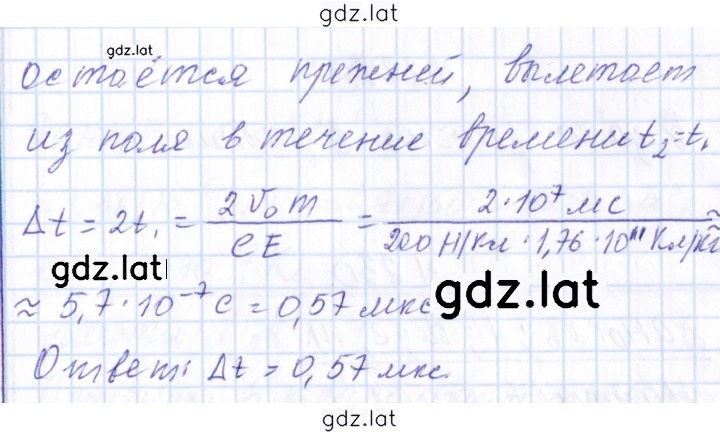 gdz.lat
gdz.lat
остаётся прежней, вылетает
из поля в течение времени t₂=t₁
Δt = 2t₁ = 2 v₀ m / eE = 2·10⁷ мс / 200 Н/Кл · 1,76 · 10¹¹ Кл/кг ≈
gdz.lat
≈ 5,7·10⁻⁷ с = 0,57 мкс
gdz.lat
Ответ: Δt = 0,57 мкс.
gdz.lat